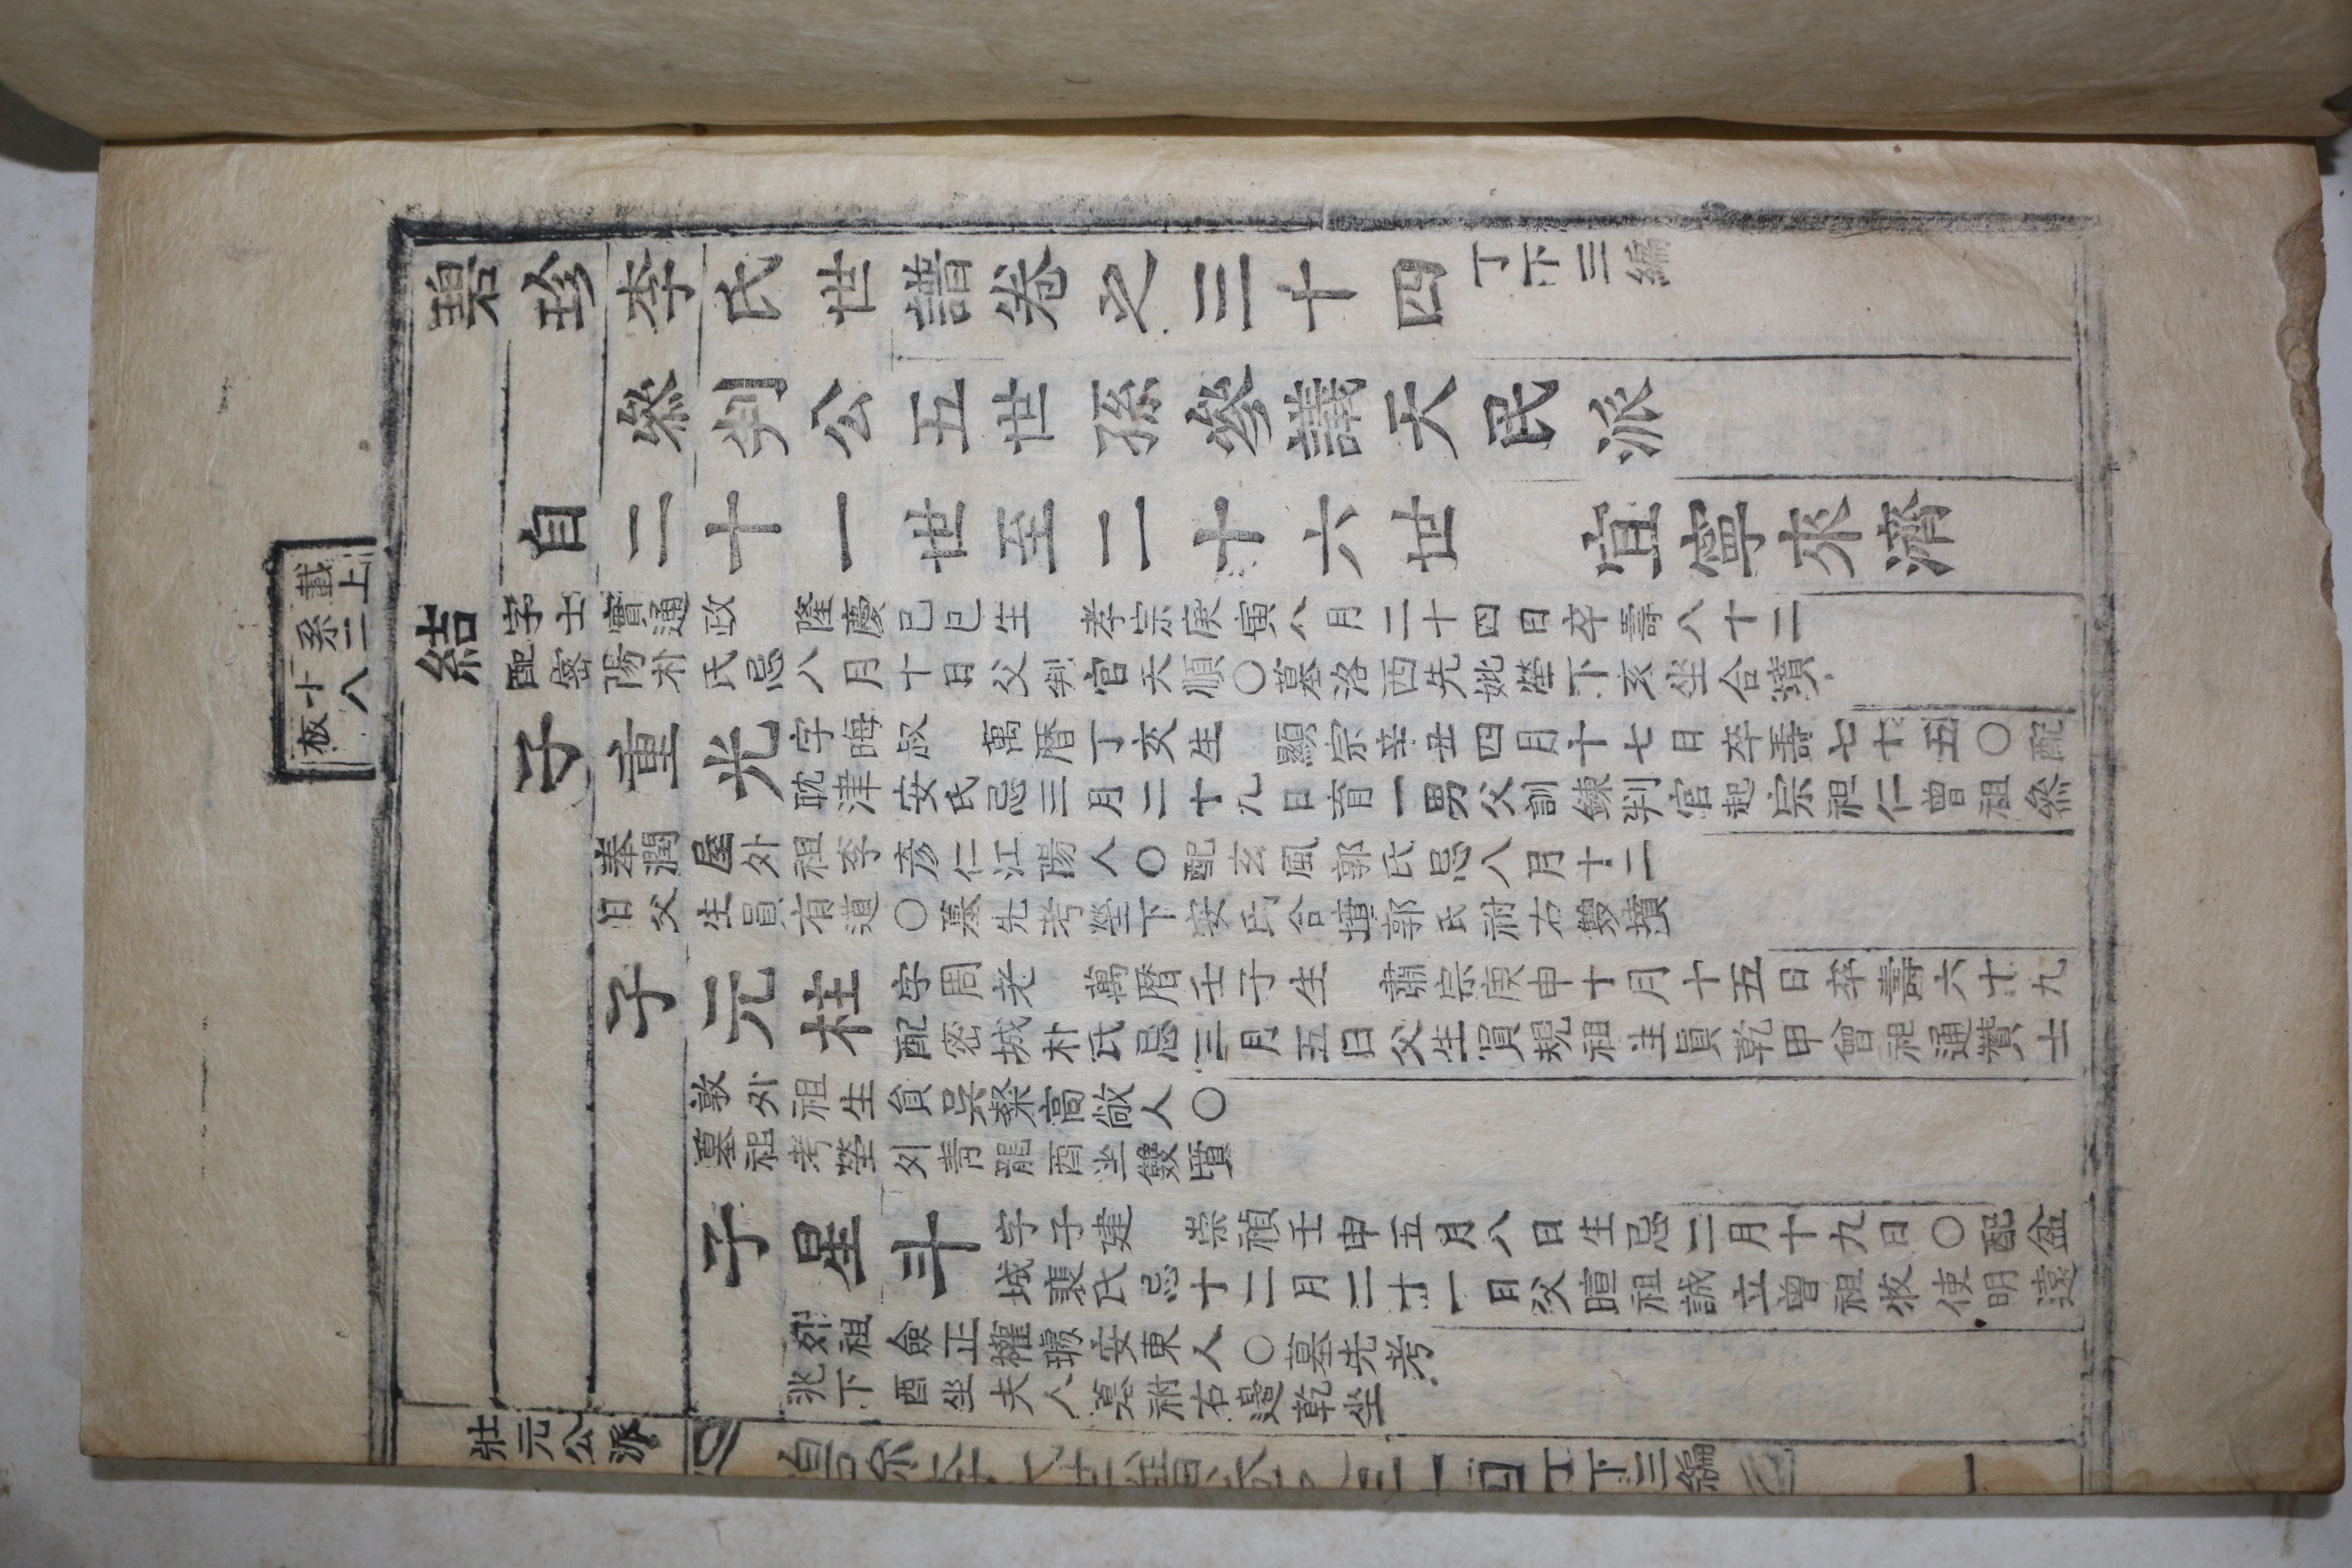 載上
系二
十八
板
碧珍李氏世譜卷之三十四 丁下三編
叅判公五世孫參議天民派
自二十一世至二十六世 宜寧來濟
結
字士實通政 隆慶己巳生 孝宗庚寅八月二十四日卒壽八十二
配密陽朴氏忌八月十日父判官天順〇墓洛西先妣塋下亥坐合墳
子重光
字晦叔 萬曆丁亥生 顯宗辛丑四月十七日卒壽七十五〇配
耽津安氏忌三月二十九日育一男父訓鍊判官起宗祖仁曾祖叅
奉潤屋外祖李彦仁江陽人〇配玄風郭氏忌八月十二
日父生員有道〇墓先考塋下安氏合墳郭氏祔右雙墳
子元柱
字周老 萬曆壬子生 肅宗庚申十月十五日卒壽六十九
配密城朴氏忌三月五日父生員規祖生員乾甲曾祖通贊士
敦外祖生員吳粲高敞人〇
墓祖考塋外靑龍酉坐雙墳
子星斗
字子建 崇禎壬申五月八日生忌二月十九日〇配盆
城裵氏忌十二月二十一日父暄祖誠立曾祖牧使明遠
外祖僉正權璩安東人〇墓先考
兆下酉坐夫人墓祔右邊乾坐
壯元公派
碧珍李氏世譜卷之三十四 丁下三編 一